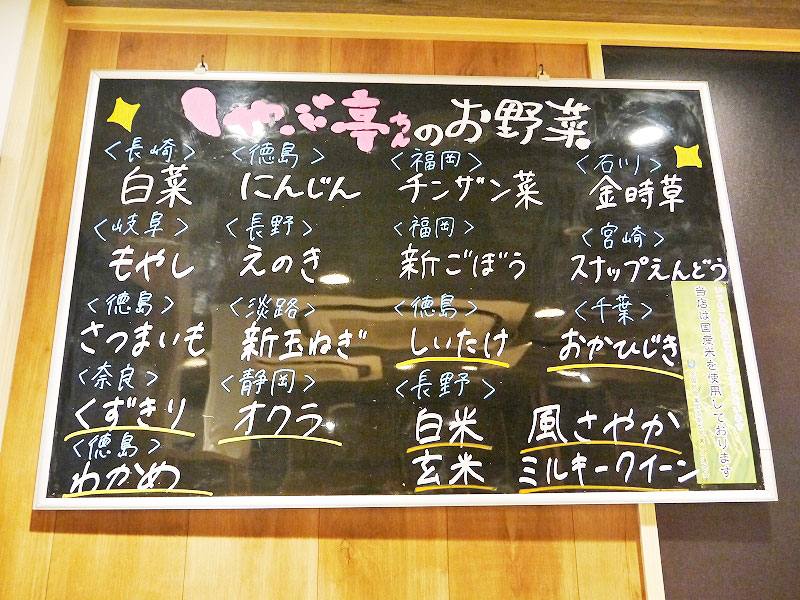 しゃぶ亭さんのお野菜
<長崎> <徳島> <福岡> <石川>
白菜 にんじん チンザン菜 金時草
<岐阜> <長野> <福岡> <宮崎>
もやし えのき 新ごぼう スナップえんどう
<徳島> <淡路> <徳島> <千葉>
さつまいも 新玉ねぎ しいたけ おかひじき
<奈良> <静岡> <長野>
くずきり オクラ 白米 風さやか
<徳島>
わかめ 玄米 ミルキークイーン
当店は国産米を使用しております